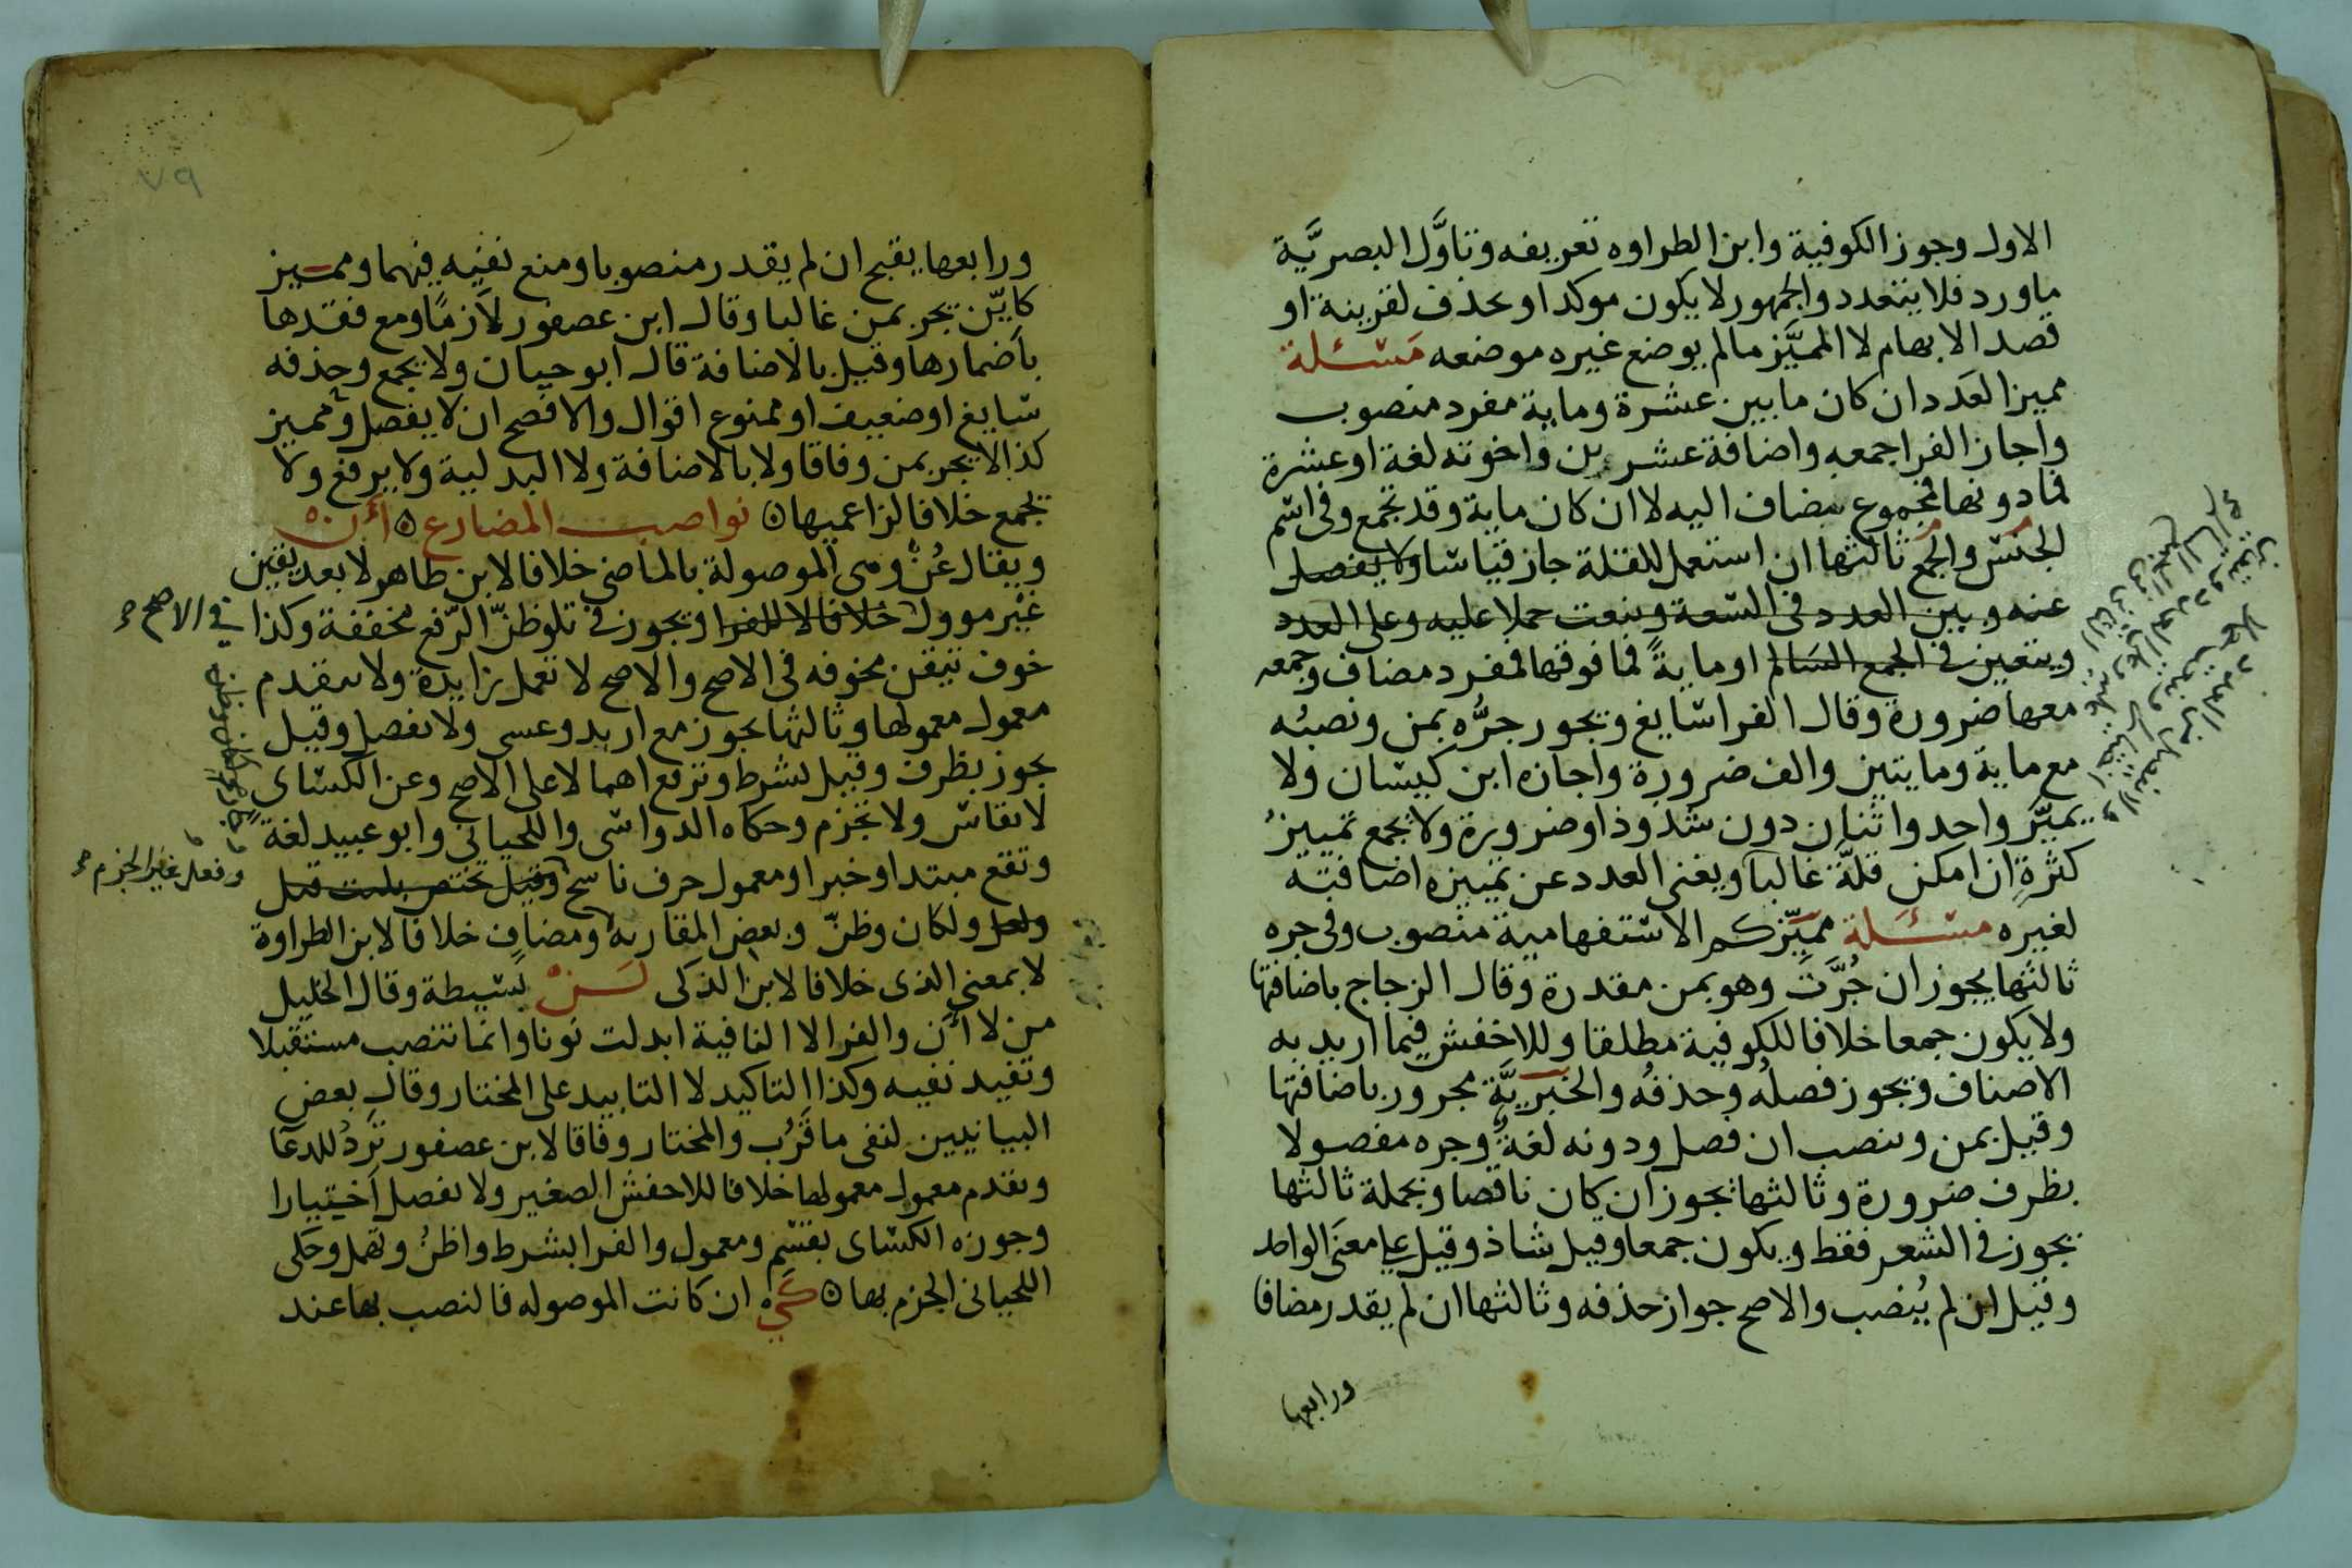 الاول وجوز الكوفية وابن الطراوه تعريفه وتاوَّل البصريَّة
ماورد فلا يتعدد والجمهور لا يكون موكدا ويحذف لقرينة او
قصد الابهام لا المميَّز مالم يوضع غيره موضعه مَسْئلة
مميز العَدد ان كان مابين عشرة وماية مفرد منصوب
واجاز الفرا جمعه واضافة عشرين واخوته لغة او عشرة
فمادونها فمجموع مضاف اليه لا ان كان ماية وقد تجمع وفي اسم
الجنس والجمع ثالثها ان استعمل للقلة جاز قياسا ولا يفصل
عنه وبين العدد في السعة وينعت حملا عليه وعلى العدد
ويتعين في الجمع السالم او مايةً فمافوقها فمفرد مضاف وجمعه
معها ضرورة وقال الفرا سايغ ويجوز جرُّه بمن ونصبُه
مع ماية ومايتين والف ضرورة واجازه ابن كيسان ولا
يميّز واحد واثنان دون شذوذا وضرورة ولا يجمع تمييزُ
كثرةٍ ان امكن قلةً غالبا ويغني العدد عن تمييزه اضافته
لغيره مسْئَلة مميّز كم الاستفهامية منصوب وفي جره
ثالثها يجوز ان جُرَّتَ وهو بمن مقدرة وقال الزجاج باضافتها
ولا يكون جمعا خلافا للكوفية مطلقا وللاخفش فيما اريد به
الاصناف ويجوز فصلُه وحذفُه والخبريَّة مجرور باضافتها
وقيل بمن وينصب ان فصل ودونه لغةً وجره مفصولا
بظرف ضرورة وثالثها يجوز ان كان ناقصا وبجملة ثالثها
يجوز في الشعر فقط ويكون جمعا وقيل شاذ وقيل على معنى الواحد
وقيل ان لم يُنصب والاصح جواز حذفه وثالثها ان لم يقدر مضافا
ورابعها
٧٩
ورابعها يقبح ان لم يقدر منصوبا ومنع نفيه فيهما ومميز
كايّن يجر بمن غالبا وقال ابن عصفور لاَزمًا ومع فقدها
باضمارها وقيل بالاضافة قال ابو حيان ولا يجمع وحذفه
سايغ او ضعيف او ممنوع اقوال والافصح ان لا يفصل ومميز
كذا لا يجر بمن وفاقا ولا بالاضافة ولا البدلية ولا يرفع ولا
يجمع خلافا لزاعميها ه نواصب المضارع ه أن
ويقال عُنْ وهي الموصولة بالماضي خلافا لابن طاهر لا بعد يقين
غير موول خلافا للفرا ويجوز في تلو ظنّ الرّفع مخففة وكذا
في الاصح
خوف تيقن مخوفه في الاصح والاصح لا تعمل زايدة ولا يتقدم
معمول معمولها وثالثها يجوز مع اريد وعسى ولا يفصل وقيل
يجوز بظرف وقيل بشرط وترفع اهمالا على الاصح وعن الكساى
لا يقاس ولا تجزم وحكاه الرواسي واللحياني وابو عبيد لغة
وتقع مبتدا وخبرا ومعمول حرف ناسخ وقيل تختص بليت قيل
وفعل غير الجزم
ولعل ولكان وظنّ وبعض المقاربه ومضاف خلافا لابن الطراوة
لا بمعنى الذى خلافا لابن الذكى لَسنْ بسيطة وقال الخليل
من لا اَن والفرا لا النافية ابدلت نونا وانما تنصب مستقبلا
وتفيد نفيه وكذا التاكيد لا التابيد على المختار وقال بعض
البيانيين لنفي ما قَرُب والمختار وفاقا لابن عصفور ترِدُ للدعا
ويقدم معمول معمولها خلافا للاخفش الصغير ولا يفصل اختيارا
وجوزه الكساى بقسَم ومعمول والفرا بشرط واظنُ وتهمل وحكى
اللحياني الجزم بها ه كَي ان كانت الموصوله فالنصب بها عند